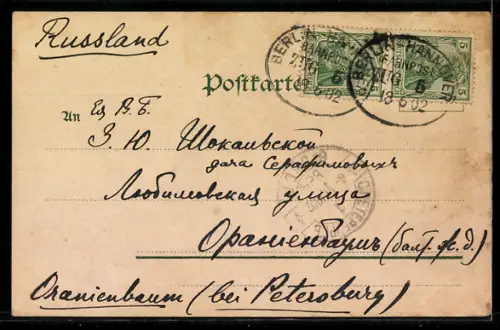 Russland
BERLIN HANNOVER
BAHNPOST
ZUG 5
18 6 02
BERLIN HANNOVER
BAHNPOST
ZUG 5
18 6 02
5
Postkarte
An Ея В. Б.
З. Ю. Шокальской
дача Серафимовыхъ
Любимовская улица
Ораніенбаумъ (балт. ж. д.)
Oranienbaum (bei Petersburg)